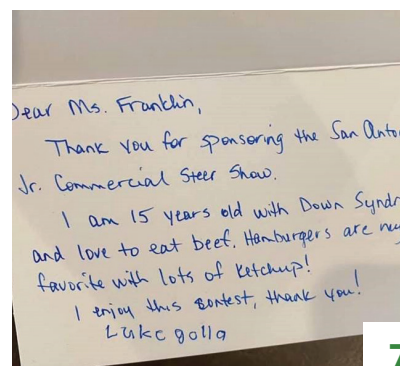 Dear Ms. Franklin,
Thank you for sponsoring the San Anto
Jr. Commercial Steer Show.
I am 15 years old with Down Syndr
and love to eat beef. Hamburgers are my
favorite with lots of ketchup!
I enjoy this contest, thank you!
Luke golla
7